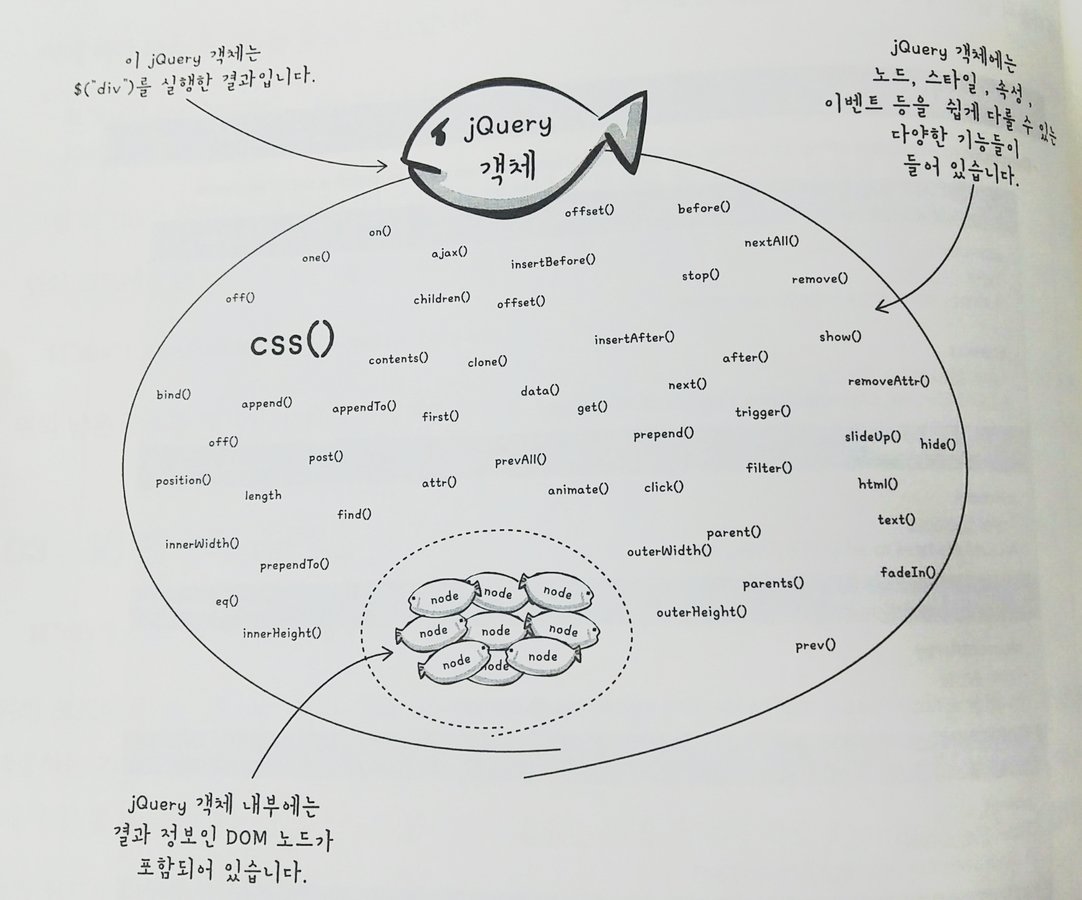 이 jQuery 객체는
$("div")를 실행한 결과입니다.
jQuery 객체에는
노드, 스타일, 속성,
이벤트 등을 쉽게 다룰 수 있는
다양한 기능들이
들어 있습니다.
jQuery
객체
offset() before()
on() nextAll()
one() ajax() insertBefore()
stop() remove()
off() children() offset()
css() insertAfter() show()
contents() clone() after()
bind() data() next() removeAttr()
append() appendTo() first() get() trigger()
off() prepend() slideUp() hide()
post() prevAll() filter()
position() length attr() animate() click() html()
find() text()
innerWidth() outerWidth() parent()
prependTo() fadeIn()
parents()
eq() outerHeight()
innerHeight() prev()
node node node
node node node
node node node
jQuery 객체 내부에는
결과 정보인 DOM 노드가
포함되어 있습니다.